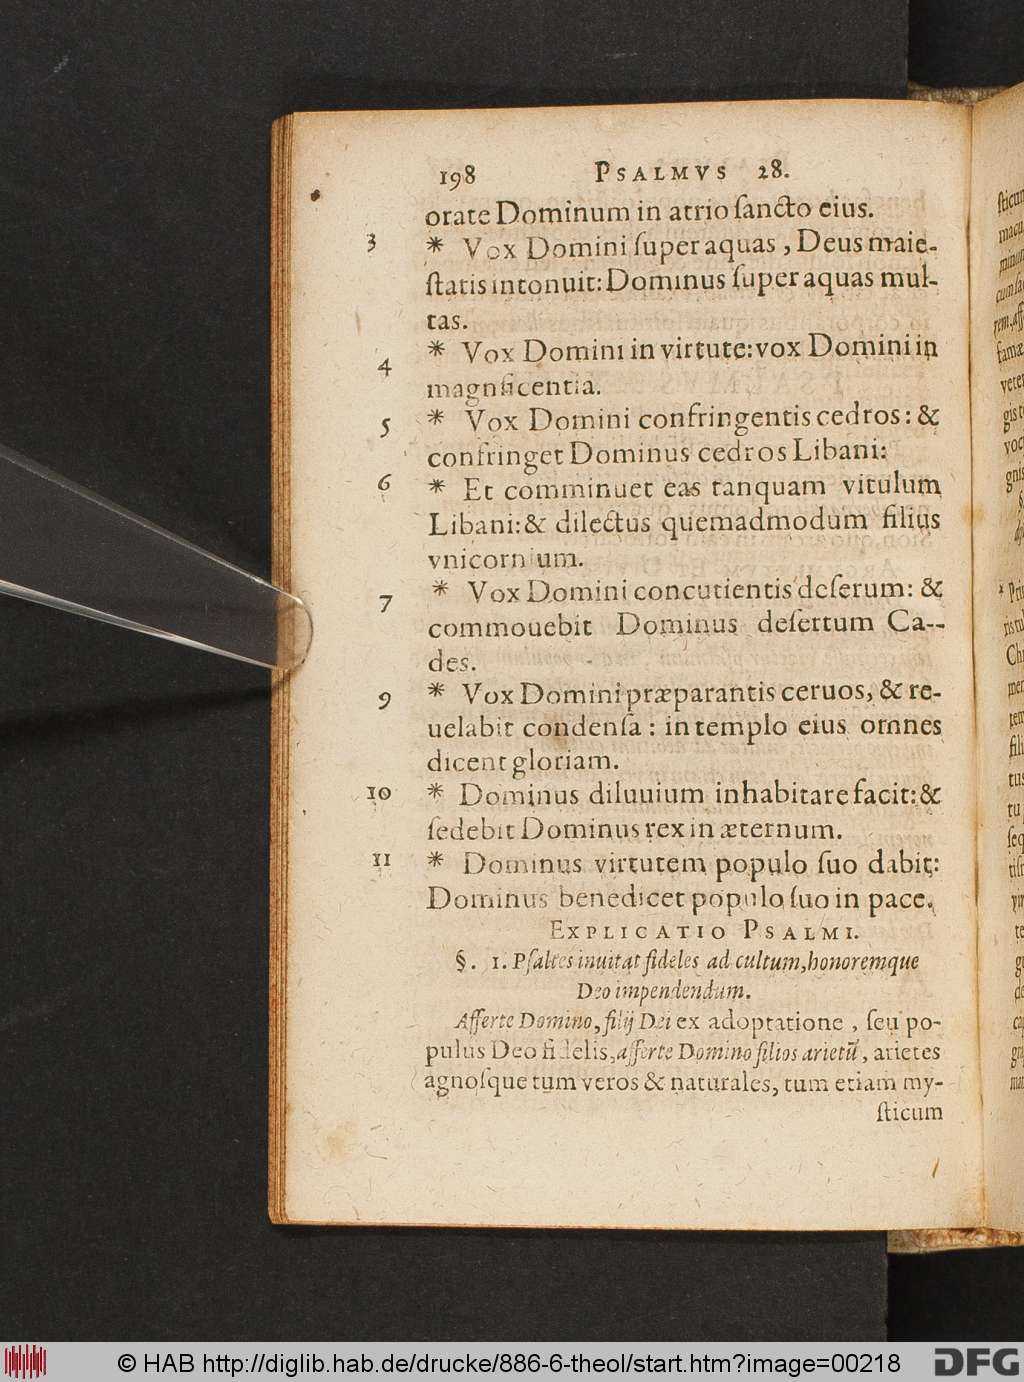 198 PSALMVS 28.
orate Dominum in atrio ſancto eius.
3 * Vox Domini ſuper aquas, Deus maie-
ſtatis intonuit: Dominus ſuper aquas mul-
tas.
4 * Vox Domini in virtute: vox Domini in
magnificentia.
5 * Vox Domini confringentis cedros: &
confringet Dominus cedros Libani:
6 * Et comminuet eas tanquam vitulum
Libani: & dilectus quemadmodum filius
vnicornium.
7 * Vox Domini concutientis deſerum: &
commouebit Dominus deſertum Ca--
des.
9 * Vox Domini præparantis ceruos, & re-
uelabit condenſa: in templo eius omnes
dicent gloriam.
10 * Dominus diluuium inhabitare facit: &
ſedebit Dominus rex in æternum.
11 * Dominus virtutem populo ſuo dabit:
Dominus benedicet populo ſuo in pace.
EXPLICATIO PSALMI.
§. 1. Pſaltes inuitat fideles ad cultum, honoremque
Deo impendendum.
Afferte Domino, filij Dei ex adoptatione, ſeu po-
pulus Deo fidelis, afferte Domino filios arietũ, arietes
agnoſque tum veros & naturales, tum etiam my-
ſticum
© HAB http://diglib.hab.de/drucke/886-6-theol/start.htm?image=00218
DFG